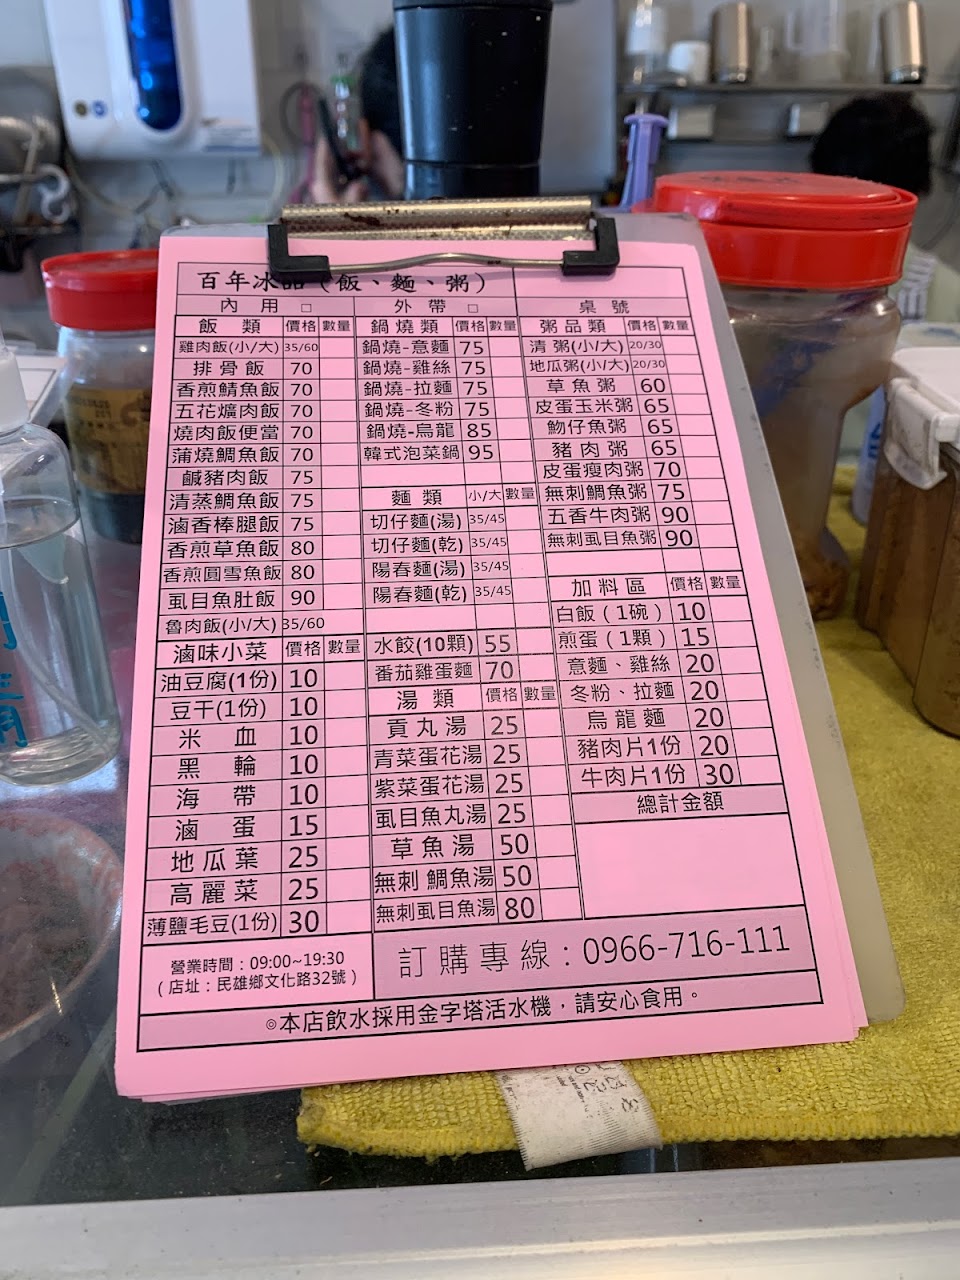 百年冰品(飯、麵、粥)
內用 □ 外帶 □ 桌號
飯類 價格 數量
雞肉飯(小/大) 35/60
排骨飯 70
香煎鯖魚飯 70
五花爌肉飯 70
燒肉飯便當 70
蒲燒鯛魚飯 70
鹹豬肉飯 75
清蒸鯛魚飯 75
滷香棒腿飯 75
香煎草魚飯 80
香煎圓雪魚飯 80
虱目魚肚飯 90
魯肉飯(小/大) 35/60
滷味小菜 價格 數量
油豆腐(1份) 10
豆干(1份) 10
米血 10
黑輪 10
海帶 10
滷蛋 15
地瓜葉 25
高麗菜 25
薄鹽毛豆(1份) 30
鍋燒類 價格 數量
鍋燒-意麵 75
鍋燒-雞絲 75
鍋燒-拉麵 75
鍋燒-冬粉 75
鍋燒-烏龍 85
韓式泡菜鍋 95
麵類 小/大 數量
切仔麵(湯) 35/45
切仔麵(乾) 35/45
陽春麵(湯) 35/45
陽春麵(乾) 35/45
水餃(10顆) 55
番茄雞蛋麵 70
湯類 價格 數量
貢丸湯 25
青菜蛋花湯 25
紫菜蛋花湯 25
虱目魚丸湯 25
草魚湯 50
無刺鯛魚湯 50
無刺虱目魚湯 80
粥品類 價格 數量
清粥(小/大) 20/30
地瓜粥(小/大) 20/30
草魚粥 60
皮蛋玉米粥 65
魩仔魚粥 65
豬肉粥 65
皮蛋瘦肉粥 70
無刺鯛魚粥 75
五香牛肉粥 90
無刺虱目魚粥 90
加料區 價格 數量
白飯(1碗) 10
煎蛋(1顆) 15
意麵、雞絲 20
冬粉、拉麵 20
烏龍麵 20
豬肉片1份 20
牛肉片1份 30
總計金額
營業時間:09:00~19:30
(店址:民雄鄉文化路32號)
訂購專線:0966-716-111
◎本店飲水採用金字塔活水機,請安心食用。